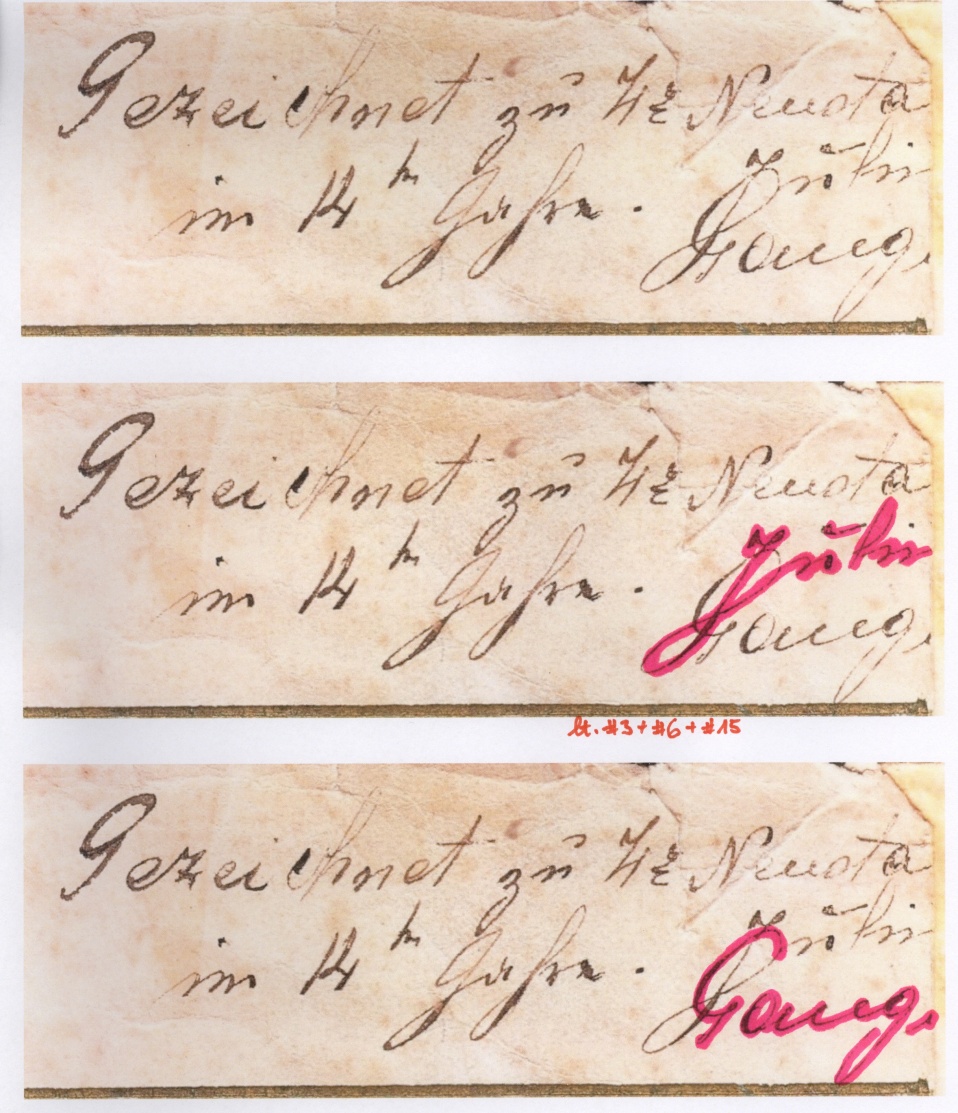 Gezeichnet zu Hz Neusta
im 14ten Jahre. Juli
Lange
Gezeichnet zu Hz Neusta
im 14ten Jahre. Juli
Lange
lt. #3 + #6 + #15
Gezeichnet zu Hz Neusta
im 14ten Jahre. Juli
Lange